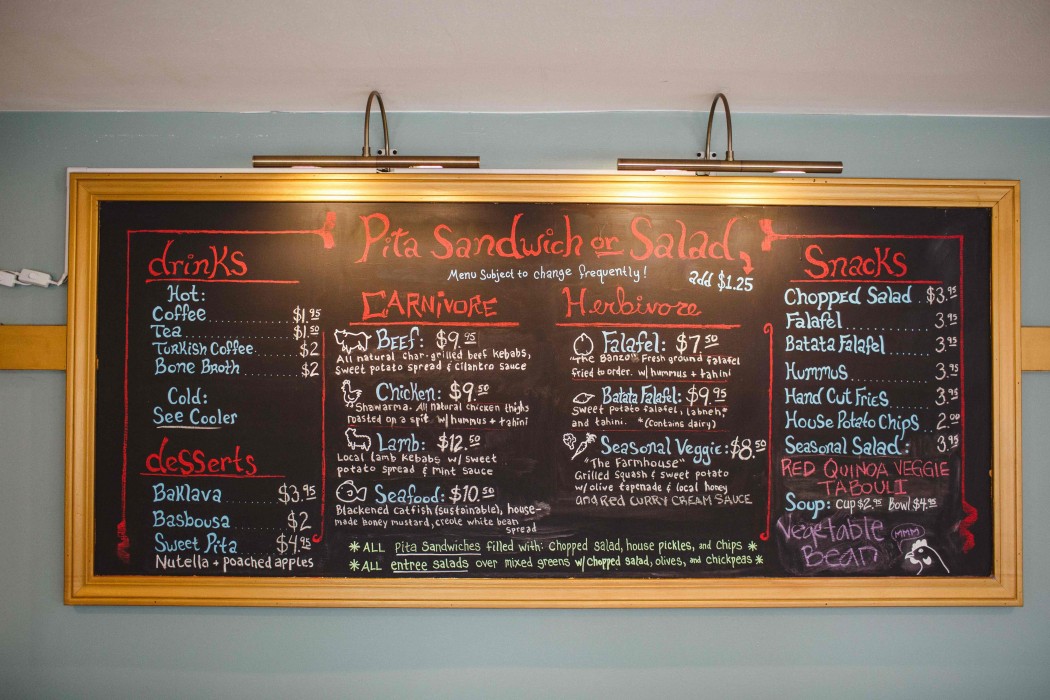 Pita Sandwich or Salad
add $1.25
Menu Subject to change frequently!
drinks
Hot:
Coffee $1.95
Tea $1.50
Turkish Coffee $2
Bone Broth $2
Cold:
See Cooler
desserts
Baklava $3.95
Basbousa $2
Sweet Pita $4.95
Nutella + poached apples
CARNIVORE
Beef: $9.95
All natural char-grilled beef kebabs,
sweet potato spread & cilantro sauce
Chicken: $9.50
"Shawarma. All natural chicken thighs
roasted on a spit w/ hummus + tahini
Lamb: $12.50
Local lamb kebabs w/ sweet
potato spread & Mint Sauce
Seafood: $10.50
Blackened catfish (sustainable), house-
made honey mustard, creole white bean
spread
Herbivore
Falafel: $7.50
"The Banzo" Fresh ground falafel
fried to order. w/ hummus + tahini
Batata Falafel: $9.95
Sweet potato falafel, labneh,*
and tahini. *(Contains dairy)
Seasonal Veggie: $8.50
"The Farmhouse"
Grilled Squash & sweet potato
w/ olive tapenade & local honey
and RED CURRY CREAM SAUCE
*ALL Pita Sandwiches filled with: chopped salad, house pickles, and chips *
*ALL entree salads over mixed greens w/ chopped salad, olives, and chickpeas *
Snacks
Chopped Salad $3.95
Falafel 3.95
Batata Falafel 3.95
Hummus 3.95
Hand Cut Fries 3.95
House Potato Chips 2.00
Seasonal Salad: 3.95
RED QUINOA VEGGIE
TABOULI
Soup: cup $2.95 Bowl $4.95
Vegetable
Bean
MMM